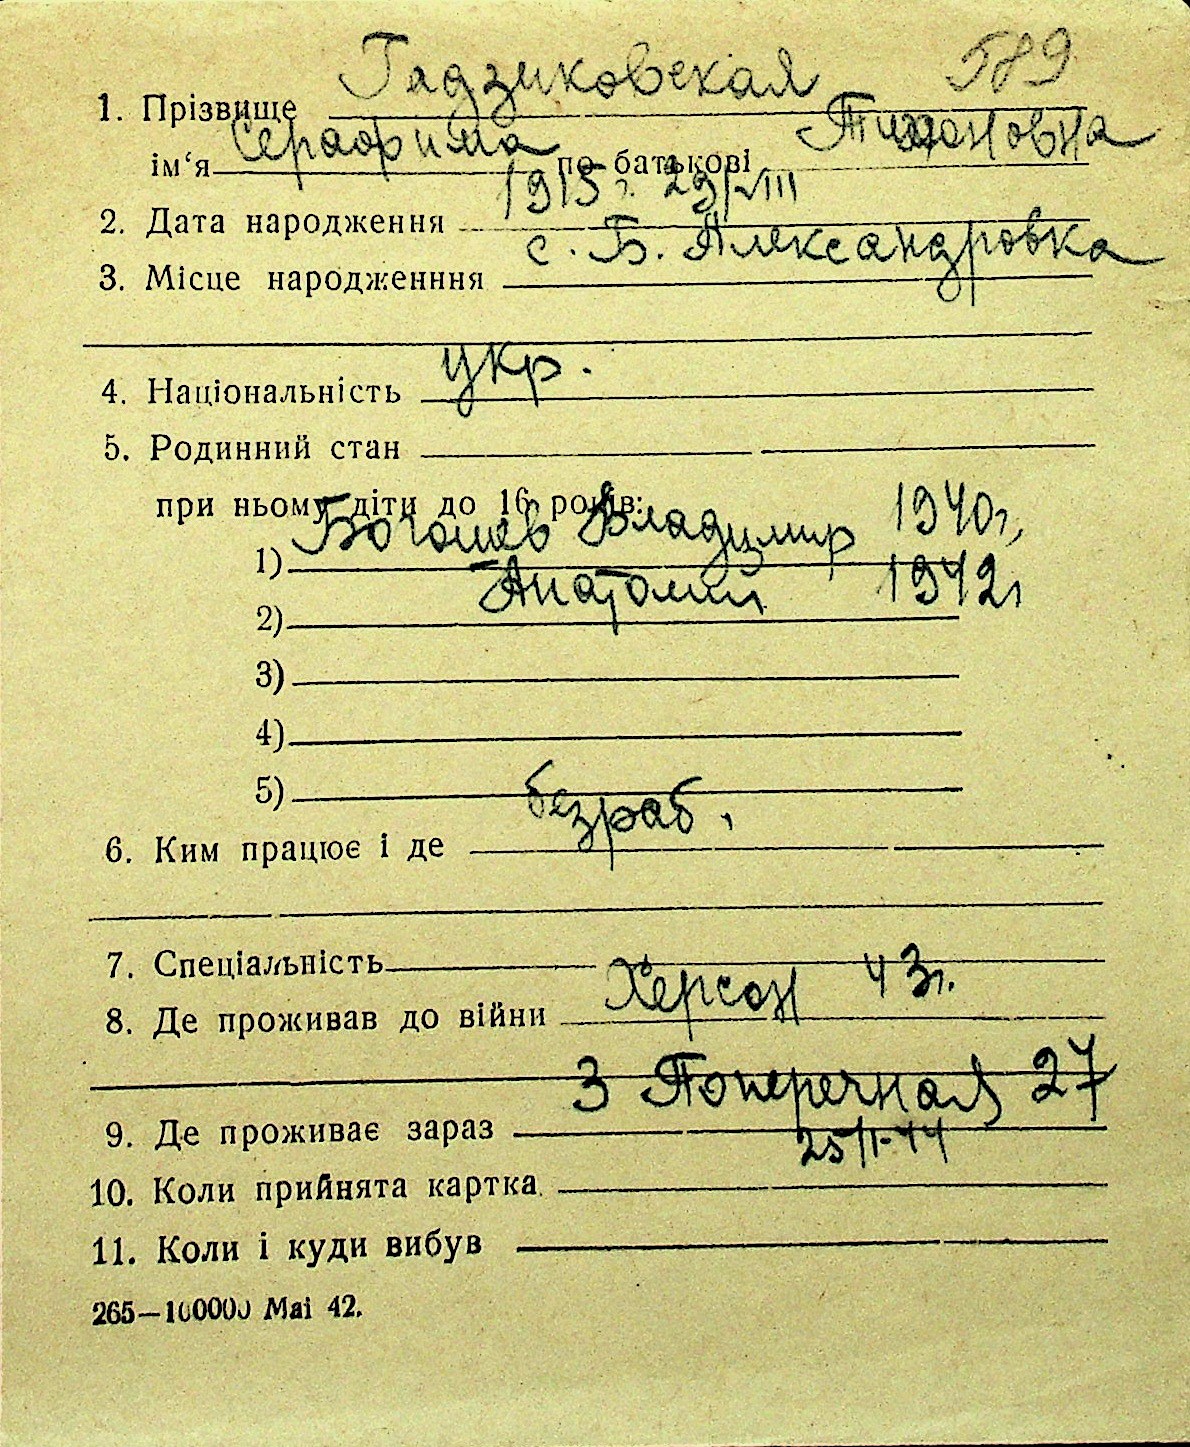 1. Прізвище Гадзиковская 589
ім‘я Серафима по батькові Тихоновна
2. Дата народження 1915 г. 29/VIII
3. Місце народженння с. Б. Александровка
4. Національність укр.
5. Родинний стан
при ньому діти до 16 років:
1) Богомев Владимир 1940г,
2) Анатолий 1942г
3)
4)
5)
6. Ким працює і де безраб.
7. Спеціальність
8. Де проживав до війни Херсон 43г.
9. Де проживає зараз 3 Поперечная 27
10. Коли прийнята картка 25/I-44
11. Коли і куди вибув
265—100000 Маі 42.